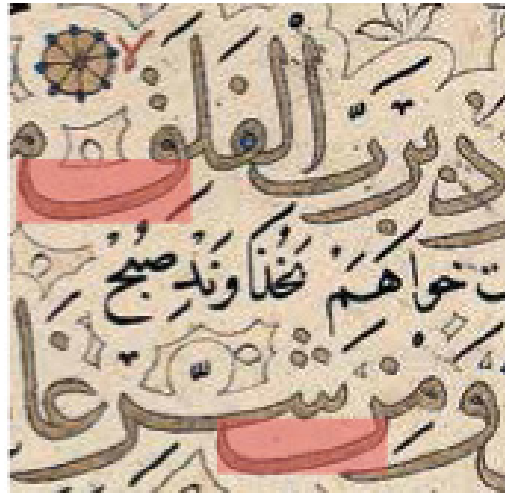 ذُ بِرَبِّ الْفَلَقِ
خواهَمْ بخُذاوَنْدِ صُبْحْ
وَمِنْ شَرِّ غَا